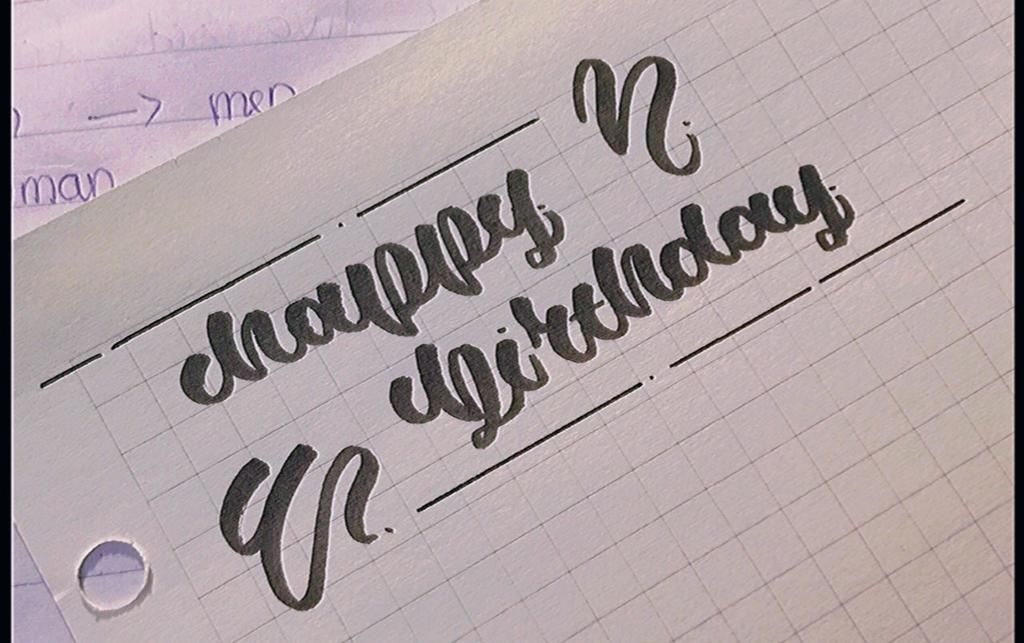 → men
man
happy
birthday